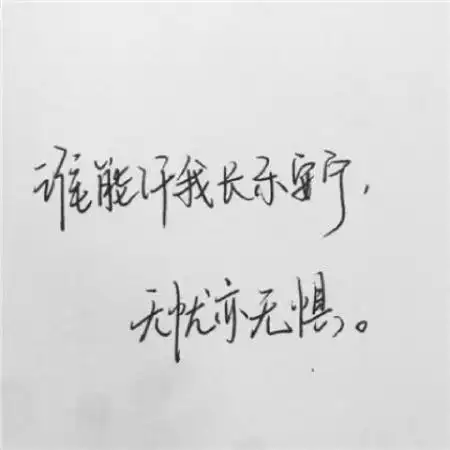 谁能许我长乐安宁,
无忧亦无惧。